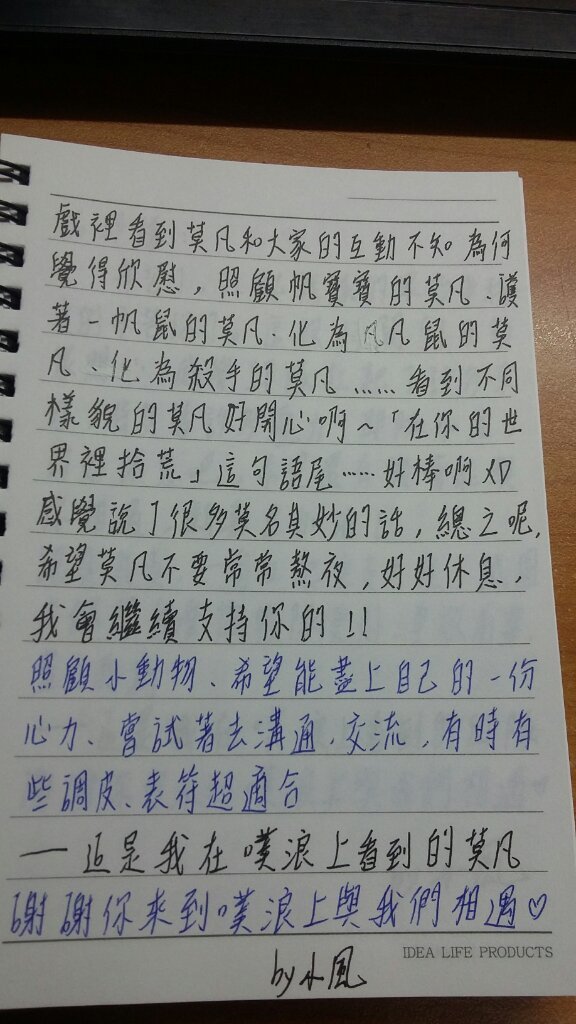 戲裡看到莫凡和大家的互動不知為何
覺得欣慰，照顧帆寶寶的莫凡、護
著一帆鼠的莫凡、化為凡凡鼠的莫
凡、化為殺手的莫凡……看到不同
樣貌的莫凡好開心啊～「在你的世
界裡拾荒」這句語尾……好棒啊XD
感覺說了很多莫名其妙的話，總之呢，
希望莫凡不要常常熬夜，好好休息，
我會繼續支持你的!!
照顧小動物、希望能盡上自己的一份
心力、嘗試著去溝通、交流，有時有
些調皮、表符超適合
——這是我在噗浪上看到的莫凡
謝謝你來到噗浪上與我們相遇♡
IDEA LIFE PRODUCTS
by小風